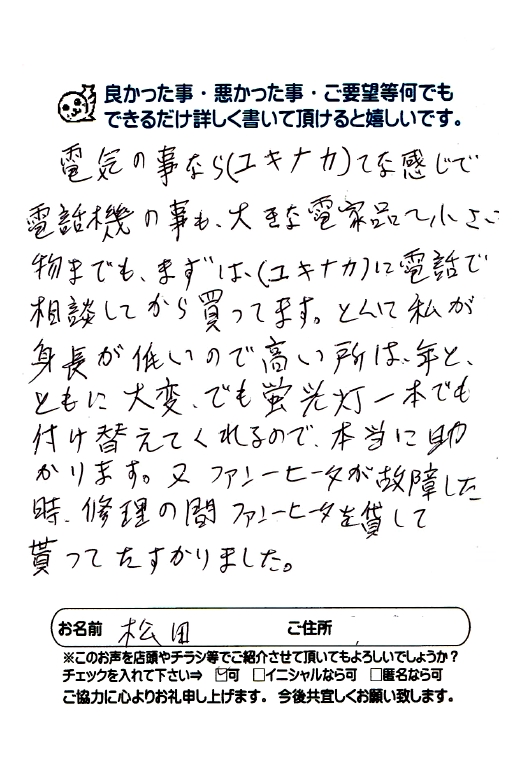 良かった事・悪かった事・ご要望等何でも
できるだけ詳しく書いて頂けると嬉しいです。
電気の事なら(ユキナカ)てな感じで
電話機の事も、大きな電家品〜小さい
物までも、まずは、(ユキナカ)に電話で
相談してから買ってます。とくに私が
身長が低いので高い所は、年と、
ともに大変、でも蛍光灯一本でも
付け替えてくれるので、本当に助
かります。又ファンヒータが故障した
時、修理の間ファンヒータを貸して
貰ってたすかりました。
お名前 松田 ご住所
※このお声を店頭やチラシ等でご紹介させて頂いてもよろしいでしょうか？
チェックを入れて下さい⇒ ☑可 □イニシャルなら可 □匿名なら可
ご協力に心よりお礼申し上げます。今後共宜しくお願い致します。